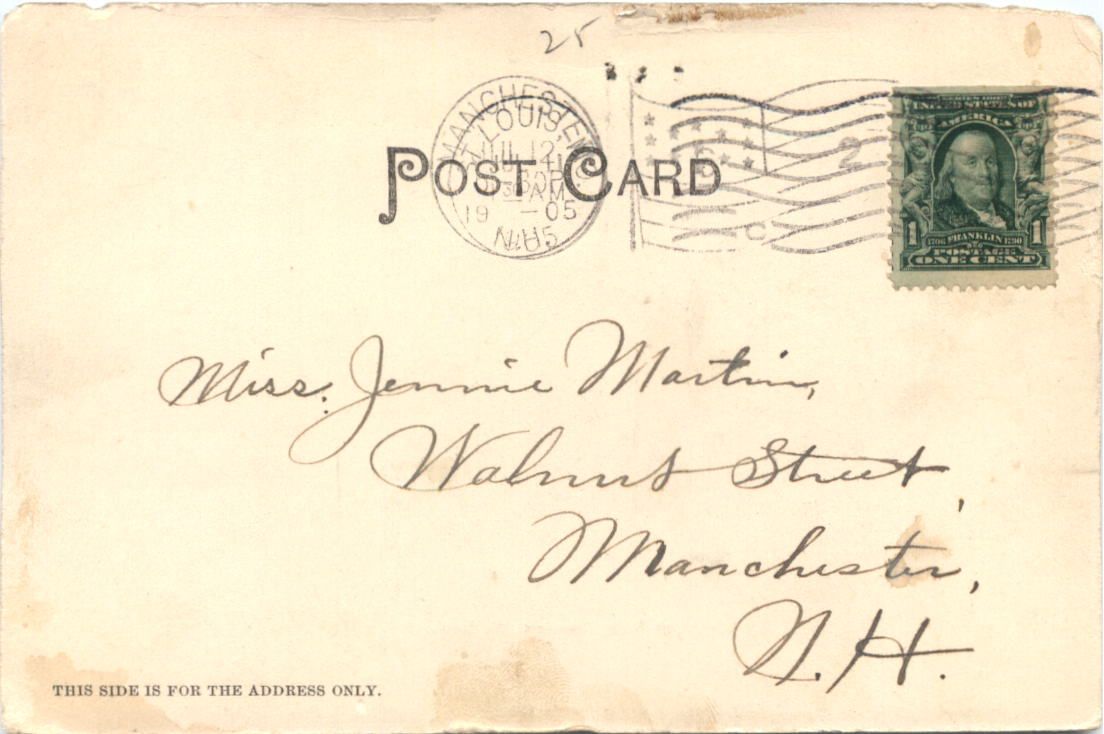 25
MANCHESTER
ST. LOUIS,
JUL 12
19 - 05
N.H.
2
POST CARD
SERIES 1902
UNITED STATES OF
AMERICA
1 1706 FRANKLIN 1790 1
POSTAGE
ONE CENT
Miss. Jennie Martin,
Walnut Street,
Manchester,
N.H.
THIS SIDE IS FOR THE ADDRESS ONLY.